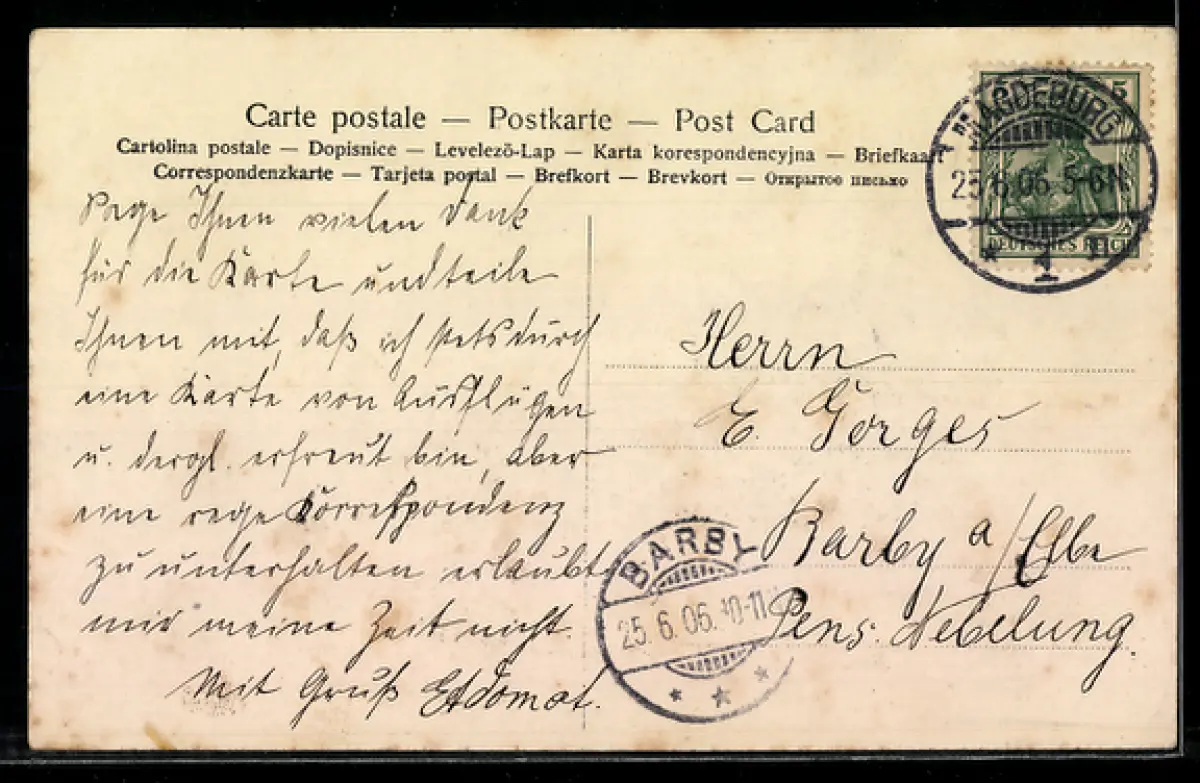 Carte postale — Postkarte — Post Card
Cartolina postale — Dopisnice — Levelező-Lap — Karta korespondencyjna — Briefkaart
Correspondenzkarte — Tarjeta postal — Brefkort — Brevkort — Открытое письмо
5 5
DEUTSCHES REICH
MAGDEBURG
25.6.06. 5-6N.
* 1
Sage Ihnen vielen Dank
für die Karte und teile
Ihnen mit, daß ich stets durch
eine Karte von Ausflügen
u. dergl. erfreut bin, aber
eine rege Korrespondenz
zu unterhalten erlaubt
mir meine Zeit nicht.
Mit Gruß
Herrn
E. Görges
Barby a/Elbe
Pens. Nebelung.
BARBY
25.6.06. 10-11
* * *